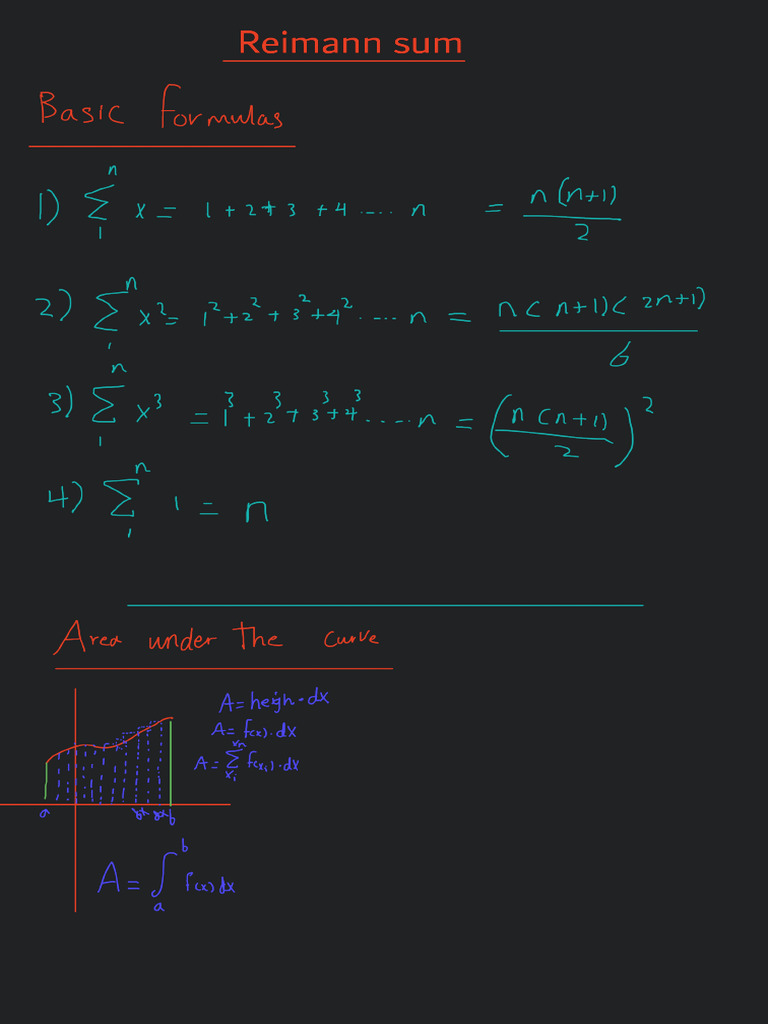 Reimann sum
Basic formulas
1) n ∑ 1 x = 1 + 2 + 3 + 4 .... n = n(n+1) / 2
2) n ∑ 1 x² = 1² + 2² + 3² + 4² .... n = n(n+1)(2n+1) / 6
3) n ∑ 1 x³ = 1³ + 2³ + 3³ + 4³ .... n = (n(n+1) / 2)²
4) n ∑ 1 1 = n
Area under the curve
A = heigh · dx
A = f(x) · dx
A = xn ∑ x1 f(xi) · dx
a b
A = ∫ a b f(x) dx